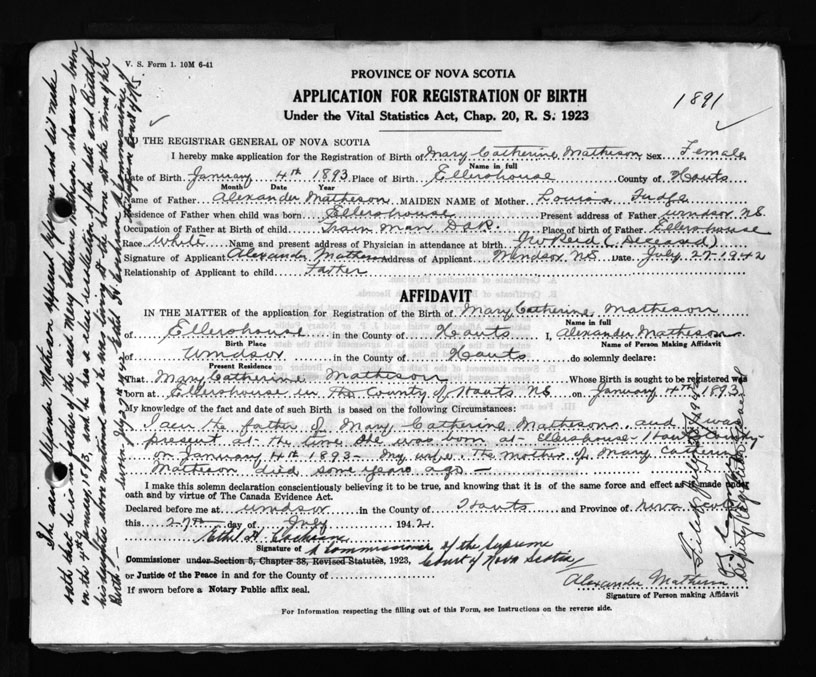 V. S. Form 1. 10M 6-41
PROVINCE OF NOVA SCOTIA
APPLICATION FOR REGISTRATION OF BIRTH
1891
Under the Vital Statistics Act, Chap. 20, R. S. 1923
TO THE REGISTRAR GENERAL OF NOVA SCOTIA
I hereby make application for the Registration of Birth of Mary Catherine Matheson Sex Female
Name in full
Date of Birth January 4th 1893 Place of Birth Ellershouse County of Hants
Month Date Year
Name of Father Alexander Matheson MAIDEN NAME of Mother Louisa
Residence of Father when child was born Ellershouse Present address of Father Windsor N.S.
Occupation of Father at Birth of child Train Man Place of birth of Father Ellershouse
Race White Name and present address of Physician in attendance at birth Reid (Deceased)
Signature of Applicant Alexander Matheson Address of Applicant Windsor N.S. Date July 27-1942
Relationship of Applicant to child Father
AFFIDAVIT
IN THE MATTER of the application for Registration of the Birth of Mary Catherine Matheson
Name in full
of Ellershouse in the County of Hants I, Alexander Matheson
Birth Place Name of Person Making Affidavit
of Windsor in the County of Hants do solemnly declare:
Present Residence
That Mary Catherine Matheson Whose Birth is sought to be registered was
born at Ellershouse in the County of Hants N.S. on January 4th 1893
My knowledge of the fact and date of such Birth is based on the following Circumstances:
I am the father of Mary Catherine Matheson and I was
present at the time she was born at Ellershouse Hants County
on January 4th 1893 - My wife the mother of Mary Catherine
Matheson died some years ago -
I make this solemn declaration conscientiously believing it to be true, and knowing that it is of the same force and effect as if made under
oath and by virtue of The Canada Evidence Act.
Declared before me at Windsor in the County of Hants and Province of Nova Scotia
this 27th day of July 1942
Ethel H. Cochrane
Signature of A Commissioner of the Supreme
Commissioner under Section 5, Chapter 38, Revised Statutes, 1923, Court of Nova Scotia
or Justice of the Peace in and for the County of
Alexander Matheson
If sworn before a Notary Public affix seal.
Signature of Person making Affidavit
For Information respecting the filling out of this Form, see Instructions on the reverse side.
The said Alexander Matheson appeared before me and did make
oath that he is the father of the said Mary Catherine Matheson who was born
on the 4th January, 1893, and he has a clear recollection of the date and Birth of
his daughter above mentioned and he was living at the home at the time of her
Birth. -
Sworn July 27th 1942
Ethel H. Cochrane Commissioner of
Supreme Court of N.S.
Filed July
Deputy Registrar General